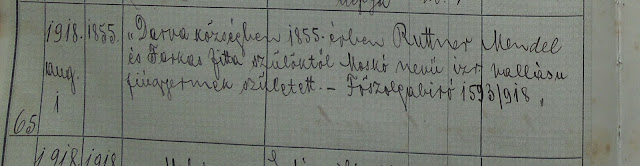 1918. 1855. „Darva községben 1855. évben Ruttner Mendel
aug. és Farkas Zitta szülőktől Moskó nevü izr. vallásu
1 fiúgyermek született. – Főszolgabiró 1593/918.
65
1918 1918